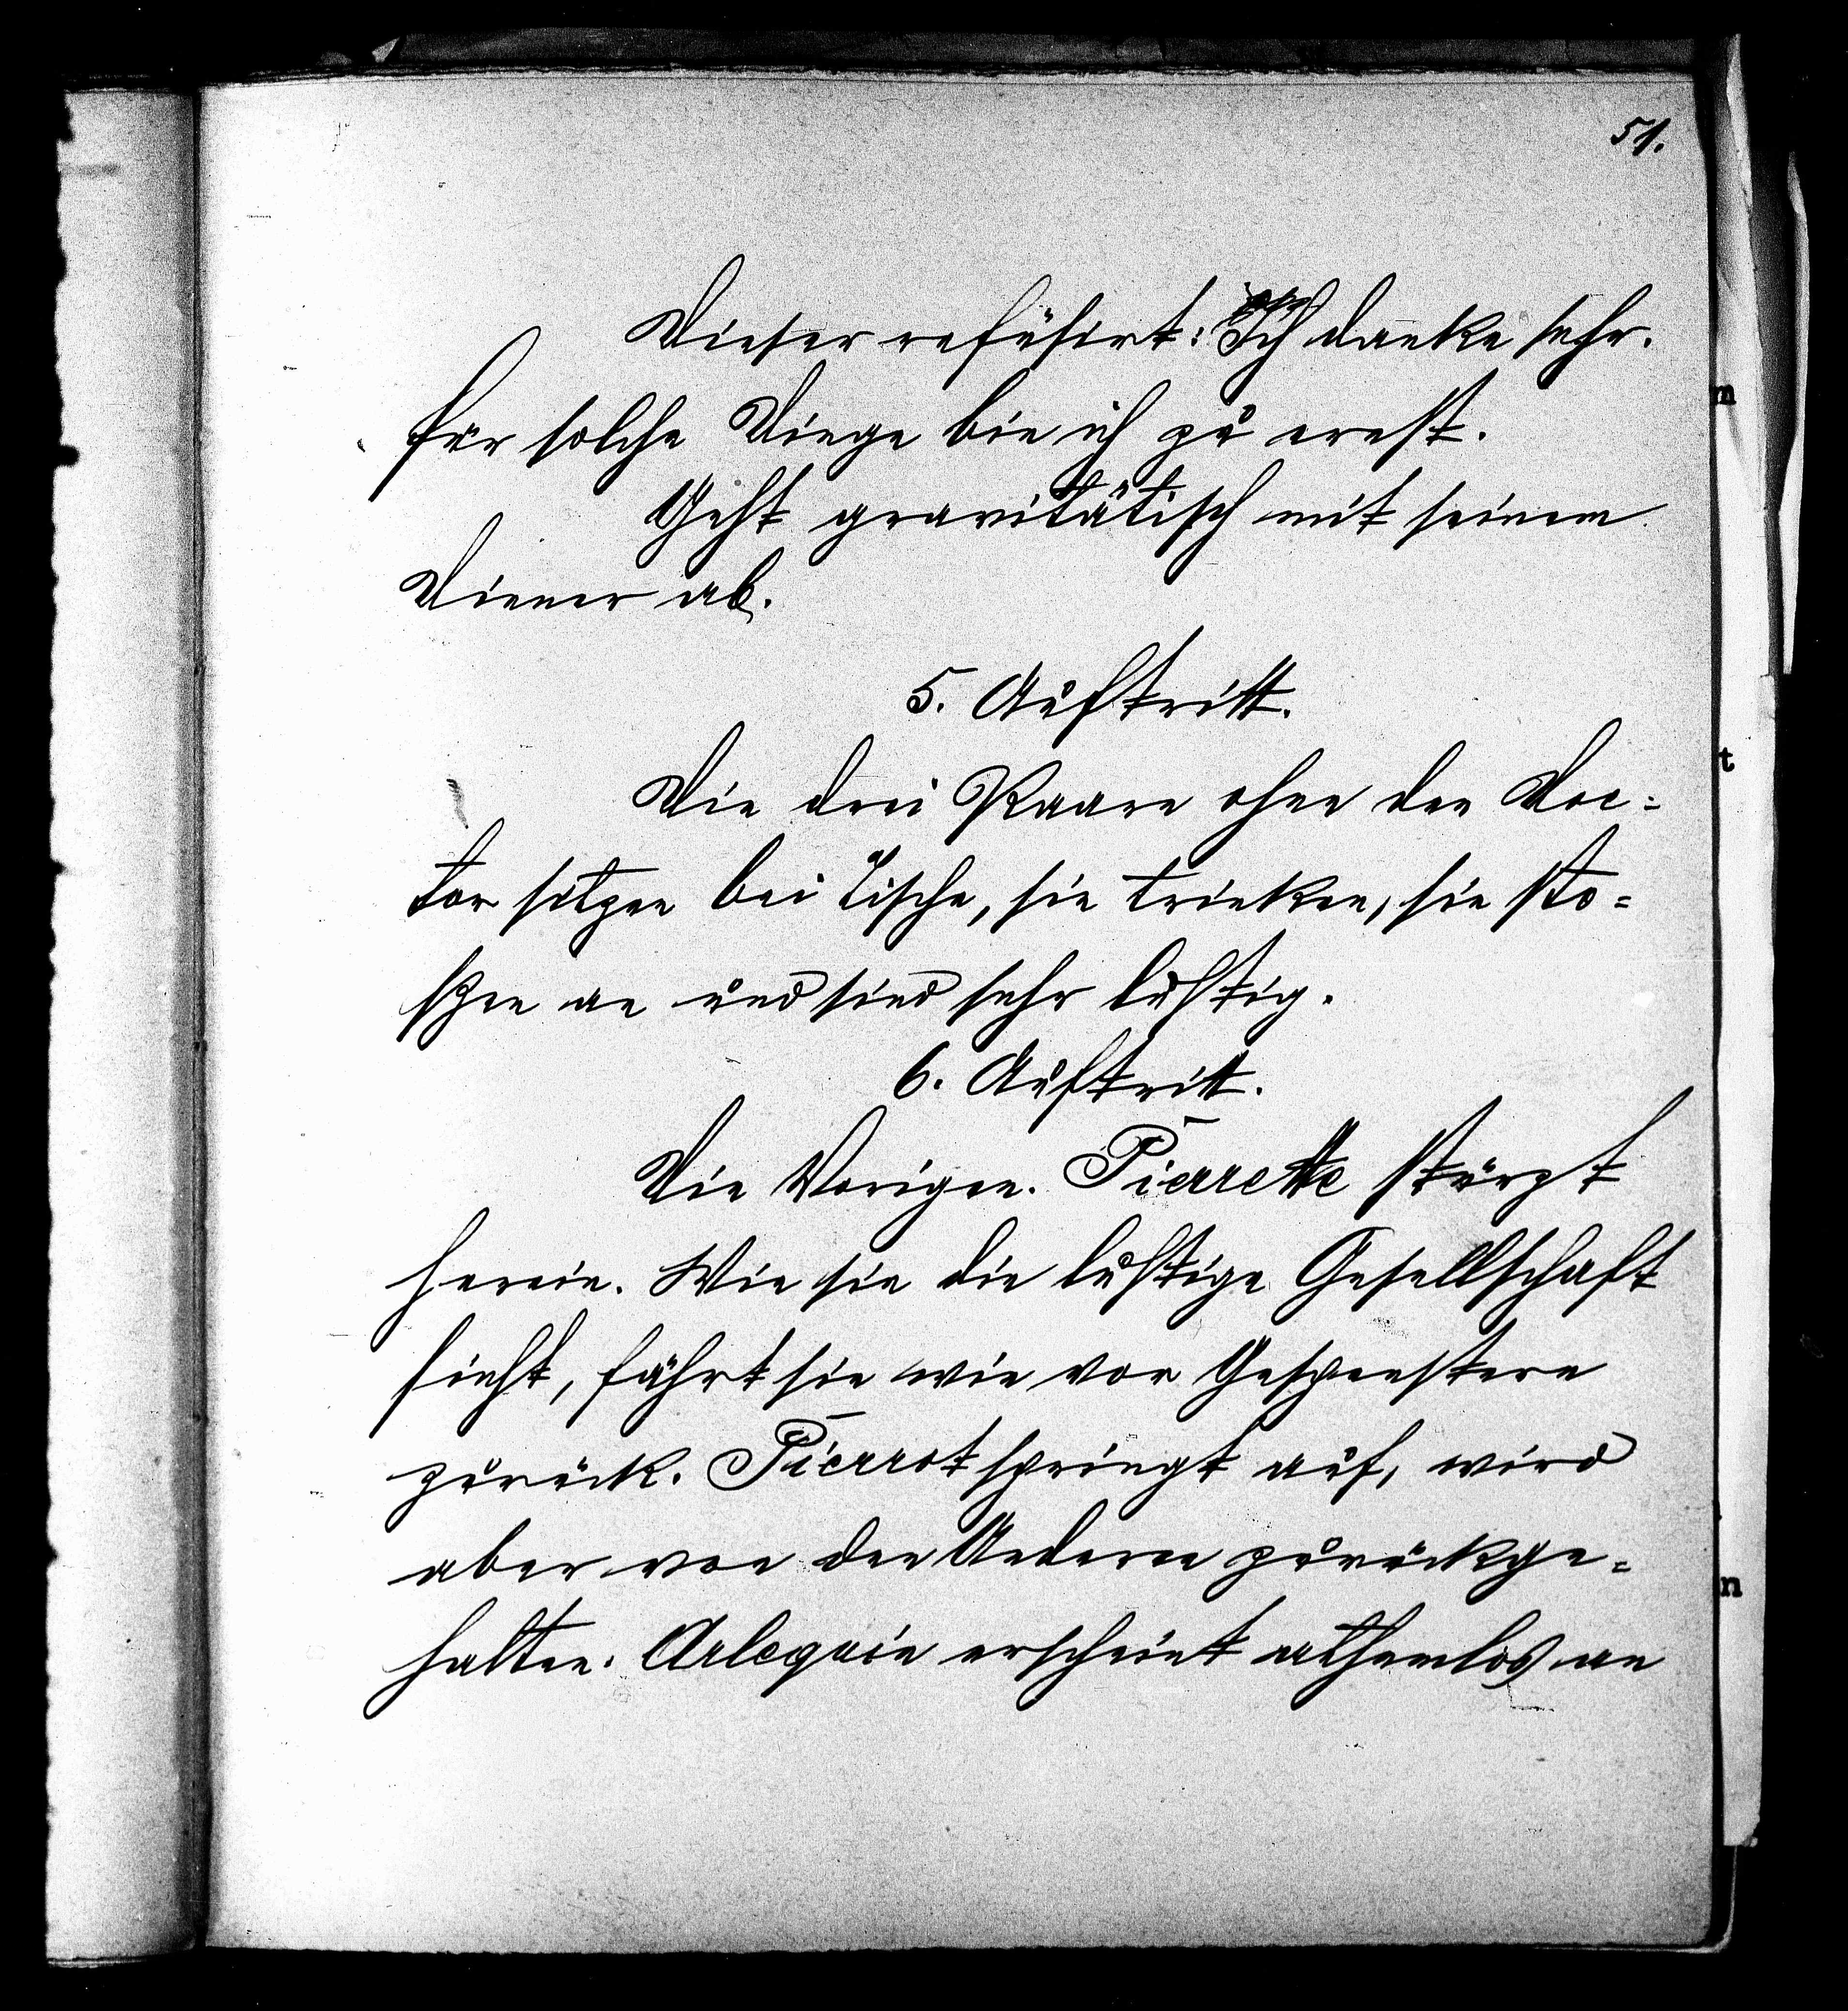 51.
Dieser refüsirt: Ich danke sehr.
für solche Dinge bin ich zu ernst.
Geht gravitätisch mit seinem
Diener ab.
5. Auftritt.
Die drei Paare ohne den Doc=
tor sitzen bei Tische, sie trinken, sie sto=
ßen an und sind sehr lustig.
6. Auftritt.
Die Vorigen. Pierrette stürzt
herein. Wie sie die lustige Gesellschaft
sieht, fährt sie wie vor Gespenstern
zurück. Pierrot springt auf, wird
aber von den Andern zurückge=
halten. Arlequin erscheint athemlos an
m
t
n